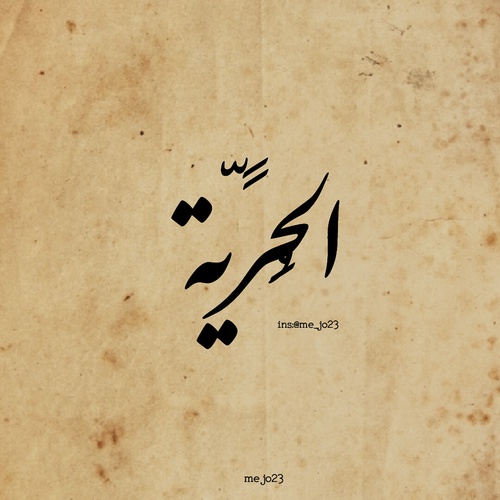 الحريّة
ins:@me_jo23
mejo23